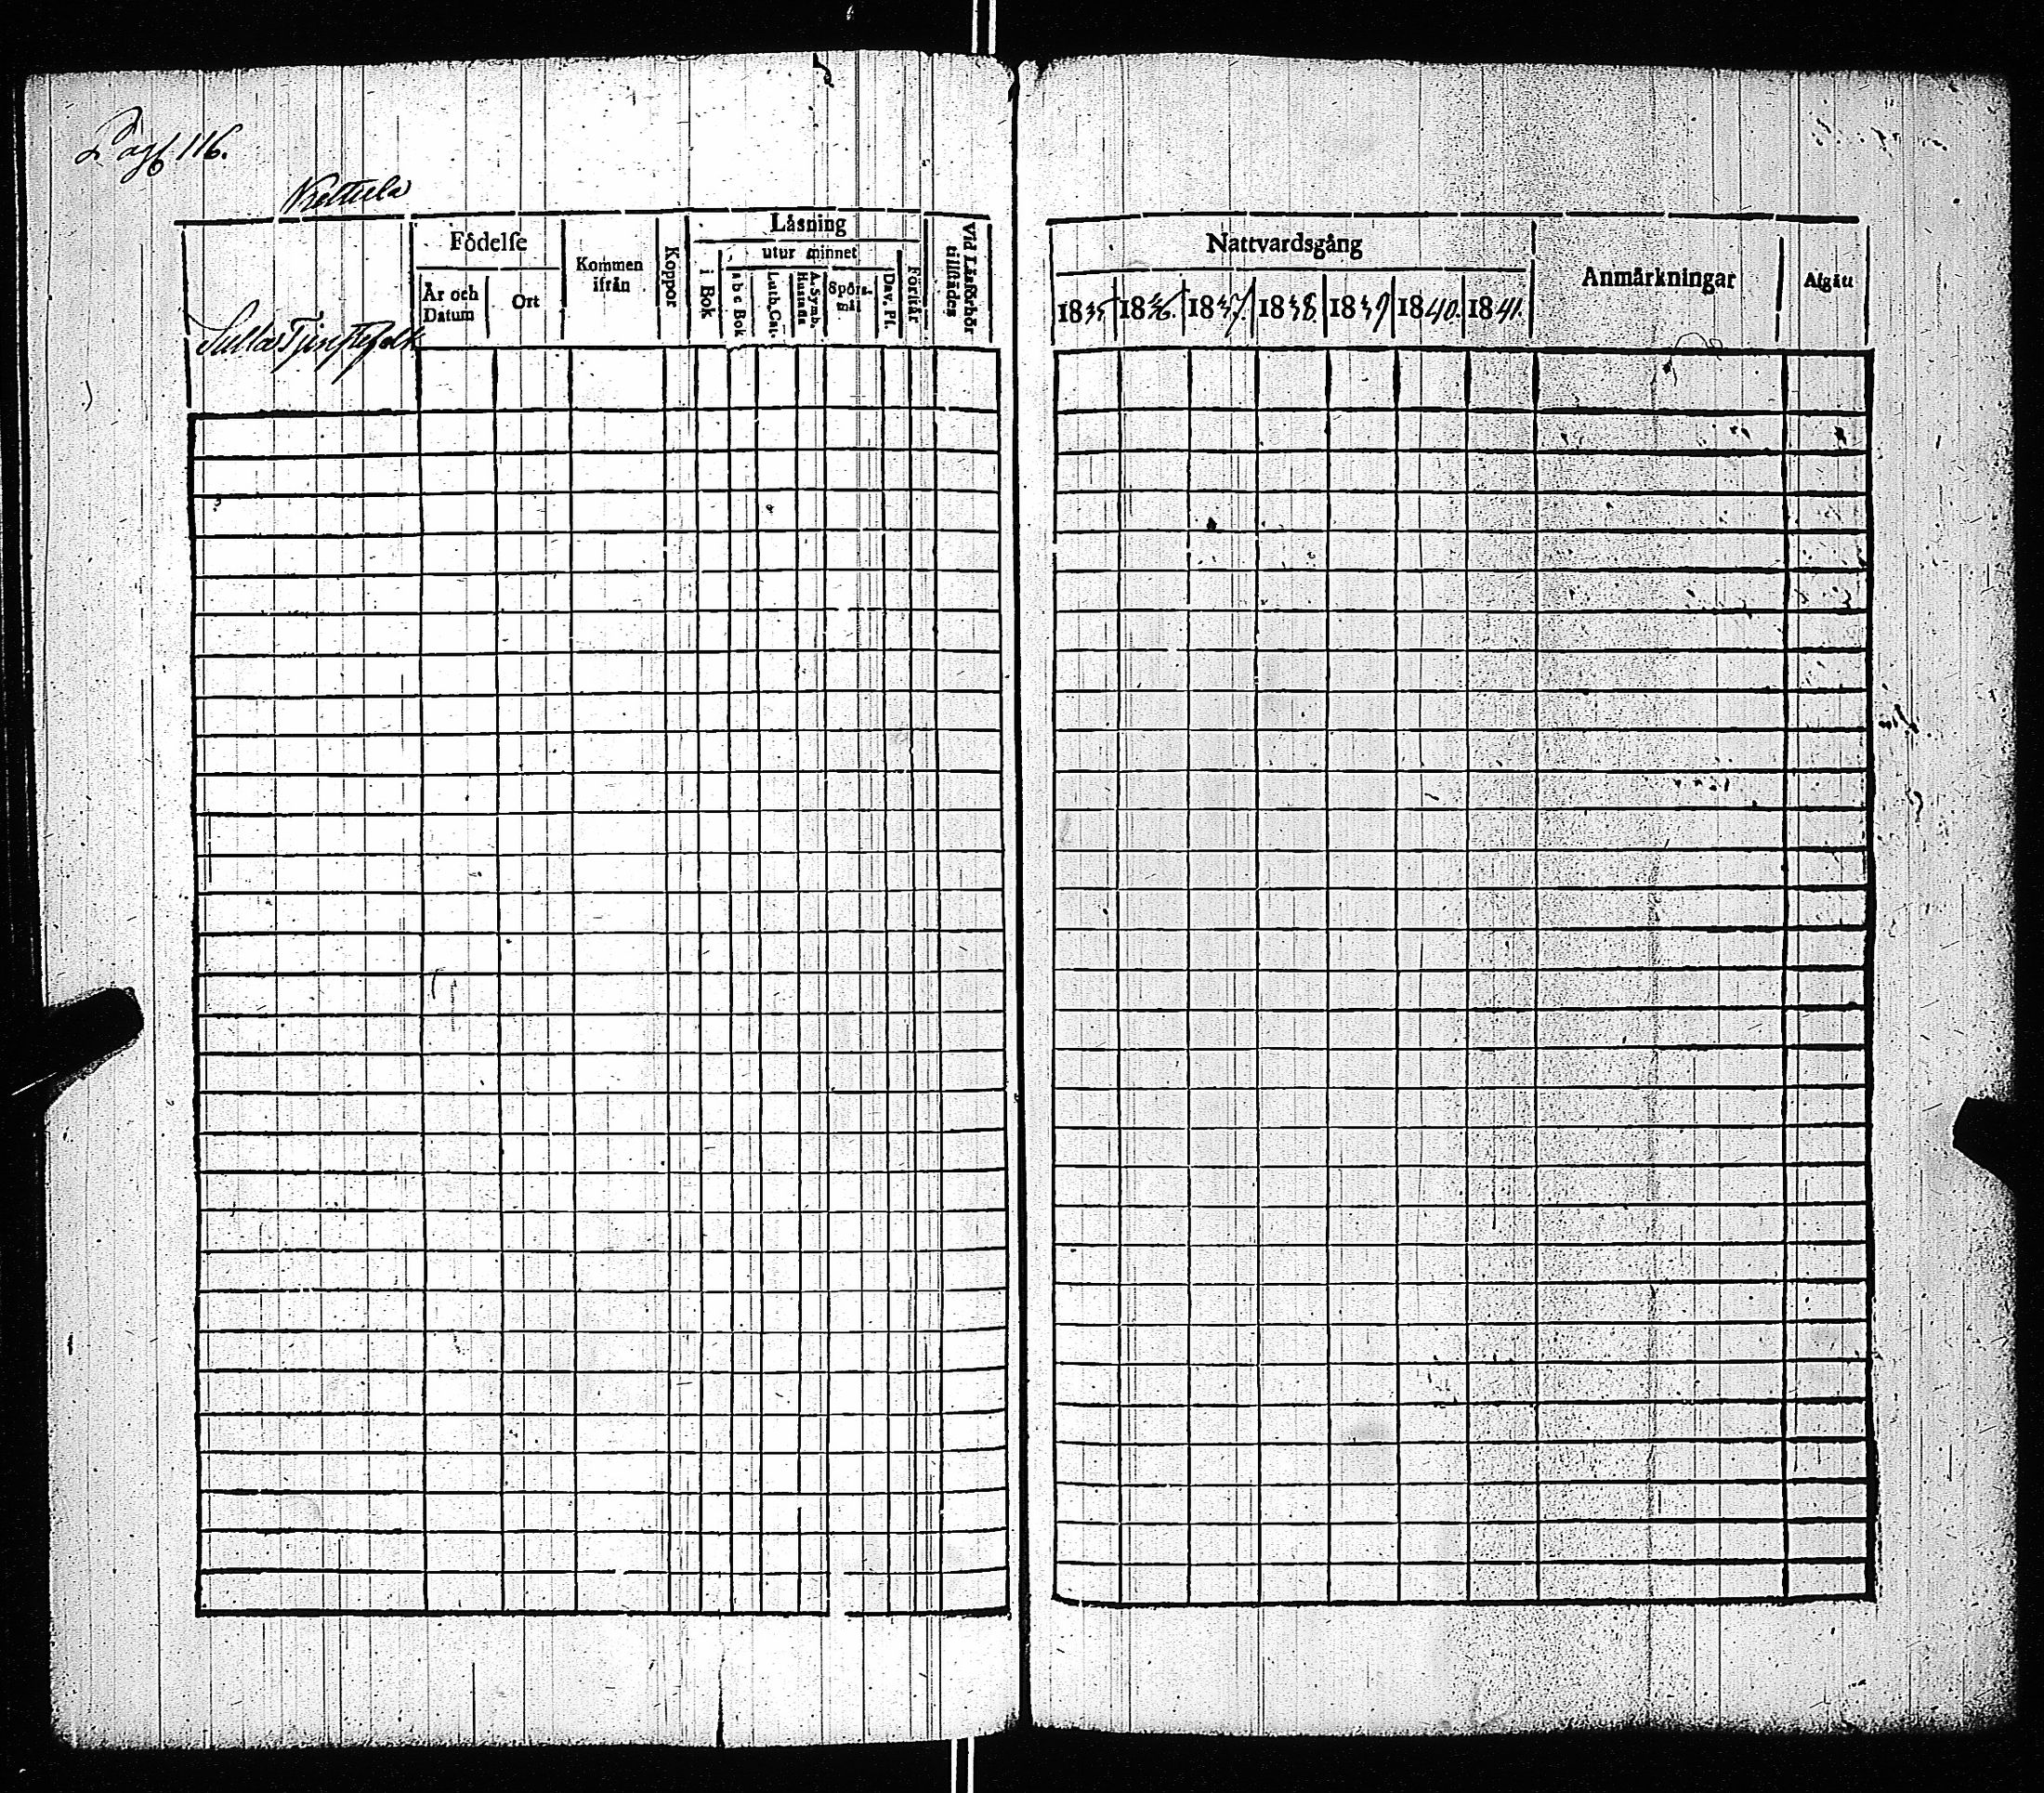 Pag 116.
Kettula
Födelse
Kommen ifrån
Koppor
Läsning
utur minnet
År och Datum
Ort
i Bok
a b c Bok
Luth. Cat.
A. Symb. Hustafla
Spörs-mål
Dav. Ps.
Förstår
Vid Läsförhör tillstädes
Tjenstefolk
Nattvardsgång
Anmärkningar
Afgått
1835 1836. 1837. 1838. 1839 1840. 1841.